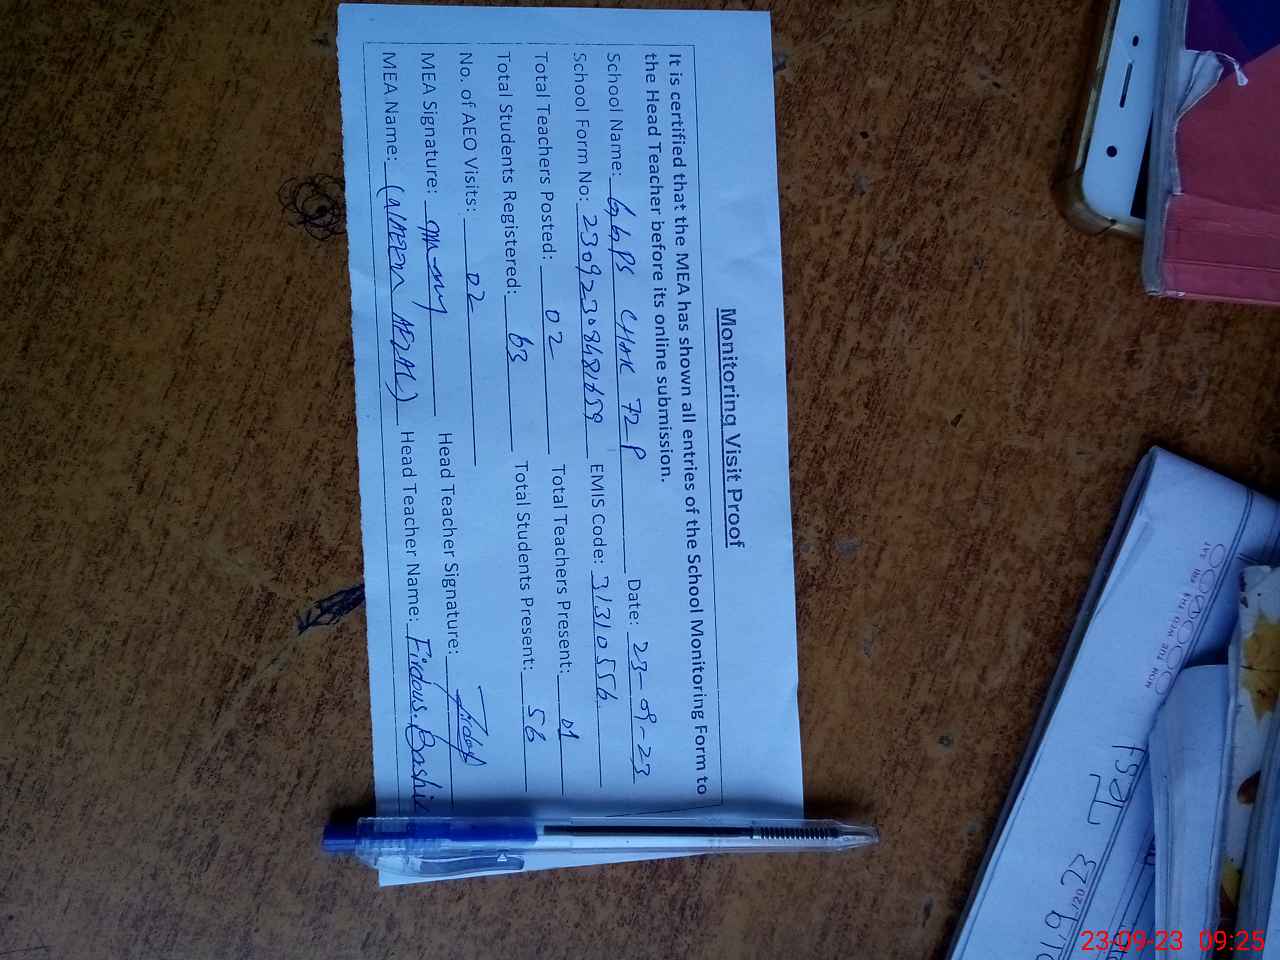 Monitoring Visit Proof
It is certified that the MEA has shown all entries of the School Monitoring Form to
the Head Teacher before its online submission.
School Name: GGPS CHAK 72 P Date: 23-09-23
School Form No: 23092308481659 EMIS Code: 31310556
Total Teachers Posted: 02 Total Teachers Present: 01
Total Students Registered: 63 Total Students Present: 56
No. of AEO Visits: 02
MEA Signature: Head Teacher Signature: Firdos
MEA Name: AFZAL) Head Teacher Name: Firdous Bashir
MON TUE WED THU FRI SAT
Test
23-09-23 09:25